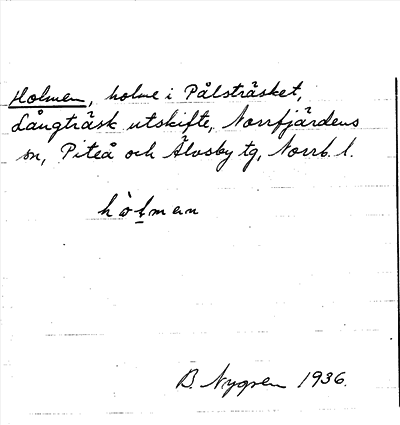 Holmen, holme i Pålsträsket,
Långträsk utskifte, Norrfjärdens
sn, Piteå och Älvsby tg, Norrb. l.
hòlmen
B. Nygren 1936.